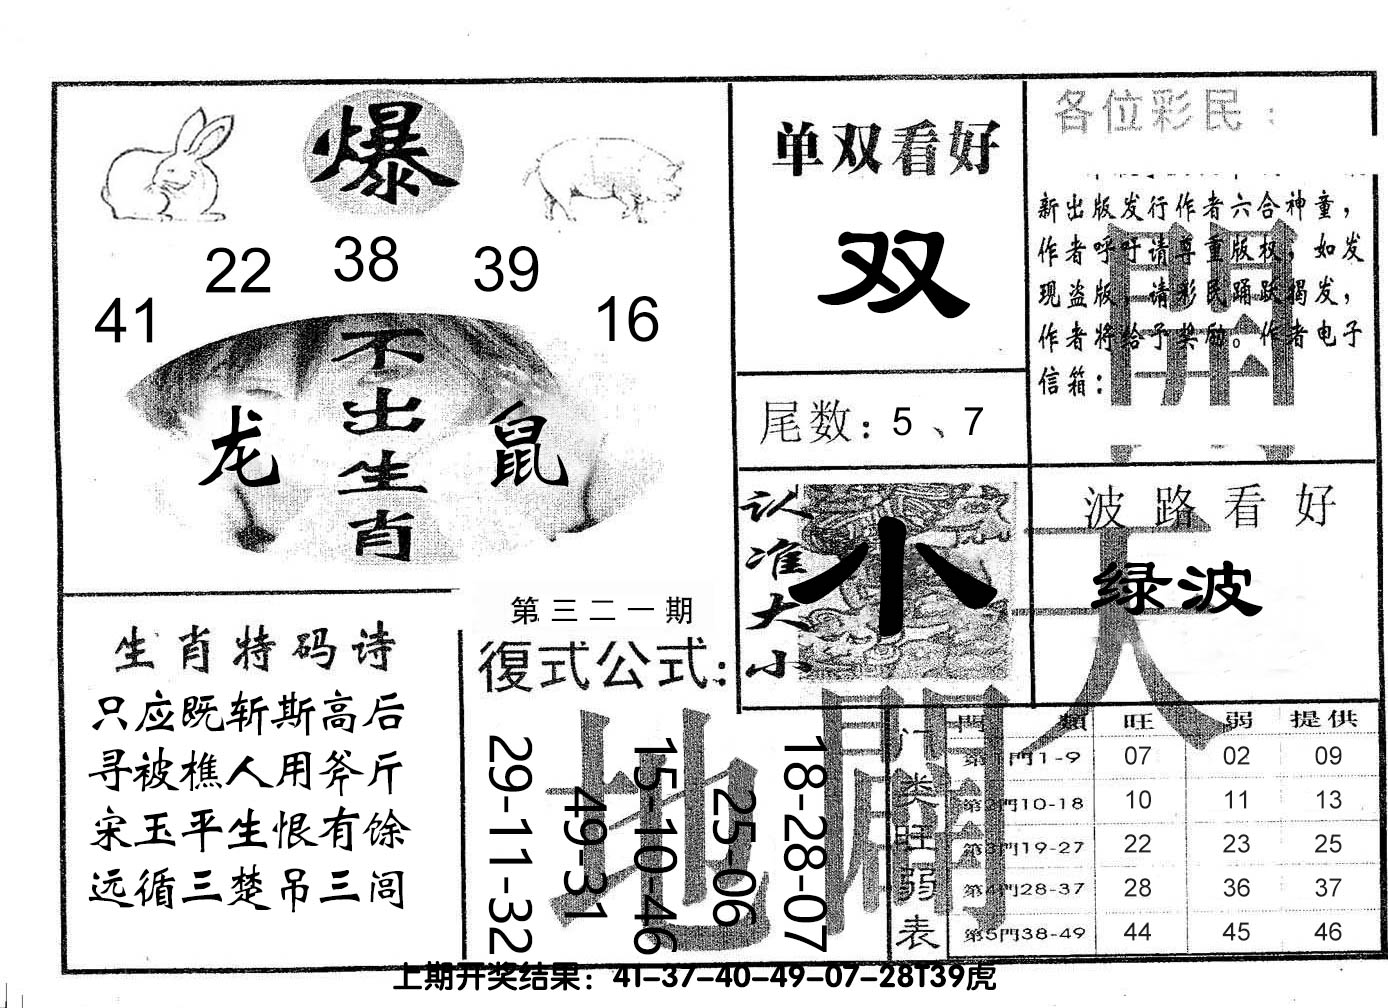 爆
22
38
39
41
16
不出生肖
龙
鼠
单双看好
双
尾数：5、7
各位彩民：
新出版发行作者六合神童，
作者呼吁请尊重版权，如发
现盗版，请彩民踊跃揭发，
作者将给予奖励。作者电子
信箱：
認准大小
小
波路看好
绿波
天
生肖特码诗
只应既斩斯高后
寻被樵人用斧斤
宋玉平生恨有馀
远循三楚吊三闾
第三二一期
復式公式：
29-11-32
49-31
15-10-46
25-06
18-28-07
地
門類 旺 弱 提供
门类旺弱表
第1門1-9 07 02 09
第2門10-18 10 11 13
第3門19-27 22 23 25
第4門28-37 28 36 37
第5門38-49 44 45 46
上期开奖结果：41-37-40-49-07-28T39虎